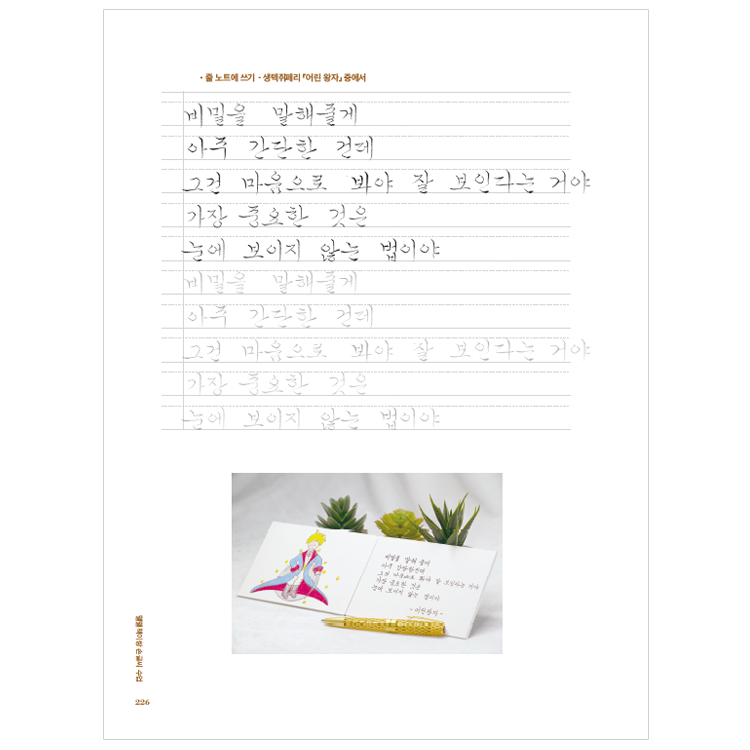 • 줄 노트에 쓰기 - 생텍쥐페리 『어린 왕자』 중에서
비밀을 말해줄게
아주 간단한 건데
그건 마음으로 봐야 잘 보인다는 거야
가장 중요한 것은
눈에 보이지 않는 법이야
비밀을 말해줄게
아주 간단한 건데
그건 마음으로 봐야 잘 보인다는 거야
가장 중요한 것은
눈에 보이지 않는 법이야
비밀을 말해 줄게
아주 간단한건데
그건 마음으로 봐야 잘 보인다는 거야
가장 중요한 것은
눈에 보이지 않는 법이야
- 어린왕자 -
손글씨 수업
226